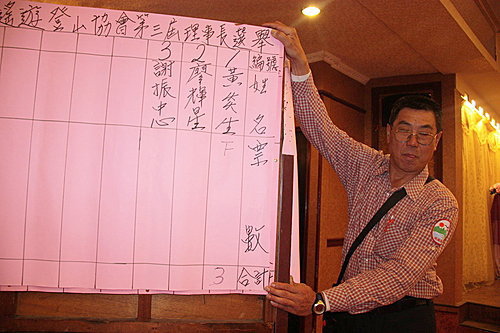 遙遊登山協會第三屆理事長選舉
編號 1 2 3
姓名 黃炎生 廖輝星 謝振忠
票數
合計 3